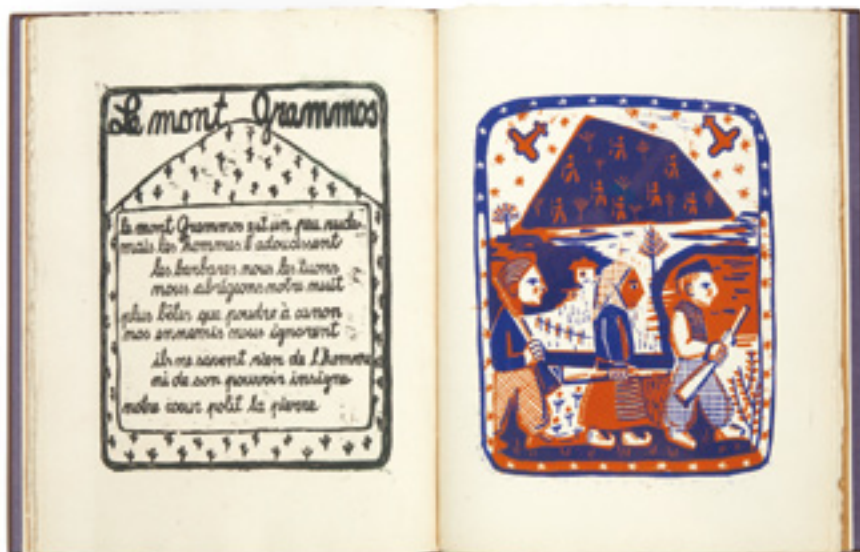 Le mont Grammos
le mont Grammos est un peu rude
mais les hommes l'adoucissent
les barbares nous les tuons
nous abrégeons notre nuit
plus bêtes que poudre à canon
nos ennemis nous ignorent
ils ne savent rien de l'homme
ni de son pouvoir insigne
notre coeur polit la pierre